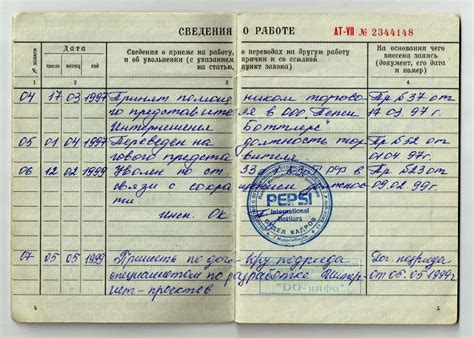 СВЕДЕНИЯ О РАБОТЕ
АТ-VII № 2344148
№ записи
Дата
число
месяц
год
Сведения о приеме на работу, о переводах на другую работу
и об увольнении (с указанием причин и со ссылкой
на статью, пункт закона)
На основании чего
внесена запись
(документ, его дата
и номер)
1 2 3 4
04 17 03 1997 Принят помощником торгово- Пр §37 от
го представителя в ООО Пепси 17.03.97г.
Интернешенл Боттлерс
05 01 04 1997 Переведен на должность тор- Пр §32 от
гового представителя 01.04.97г.
06 12 02 1999 Уволен по ст 33 п.1 КЗоТ РФ в Пр §23 от
связи с сокращением 09.02.99г.
инсп. ОК
PEPSI
International
Bottlers
ОТДЕЛ КАДРОВ
07 05 05 1999 по договору подряда Дог подряда
специалистом по разработке Интер- от 05.05.1999г
нет-проектов
"DO-инфо"
4
5